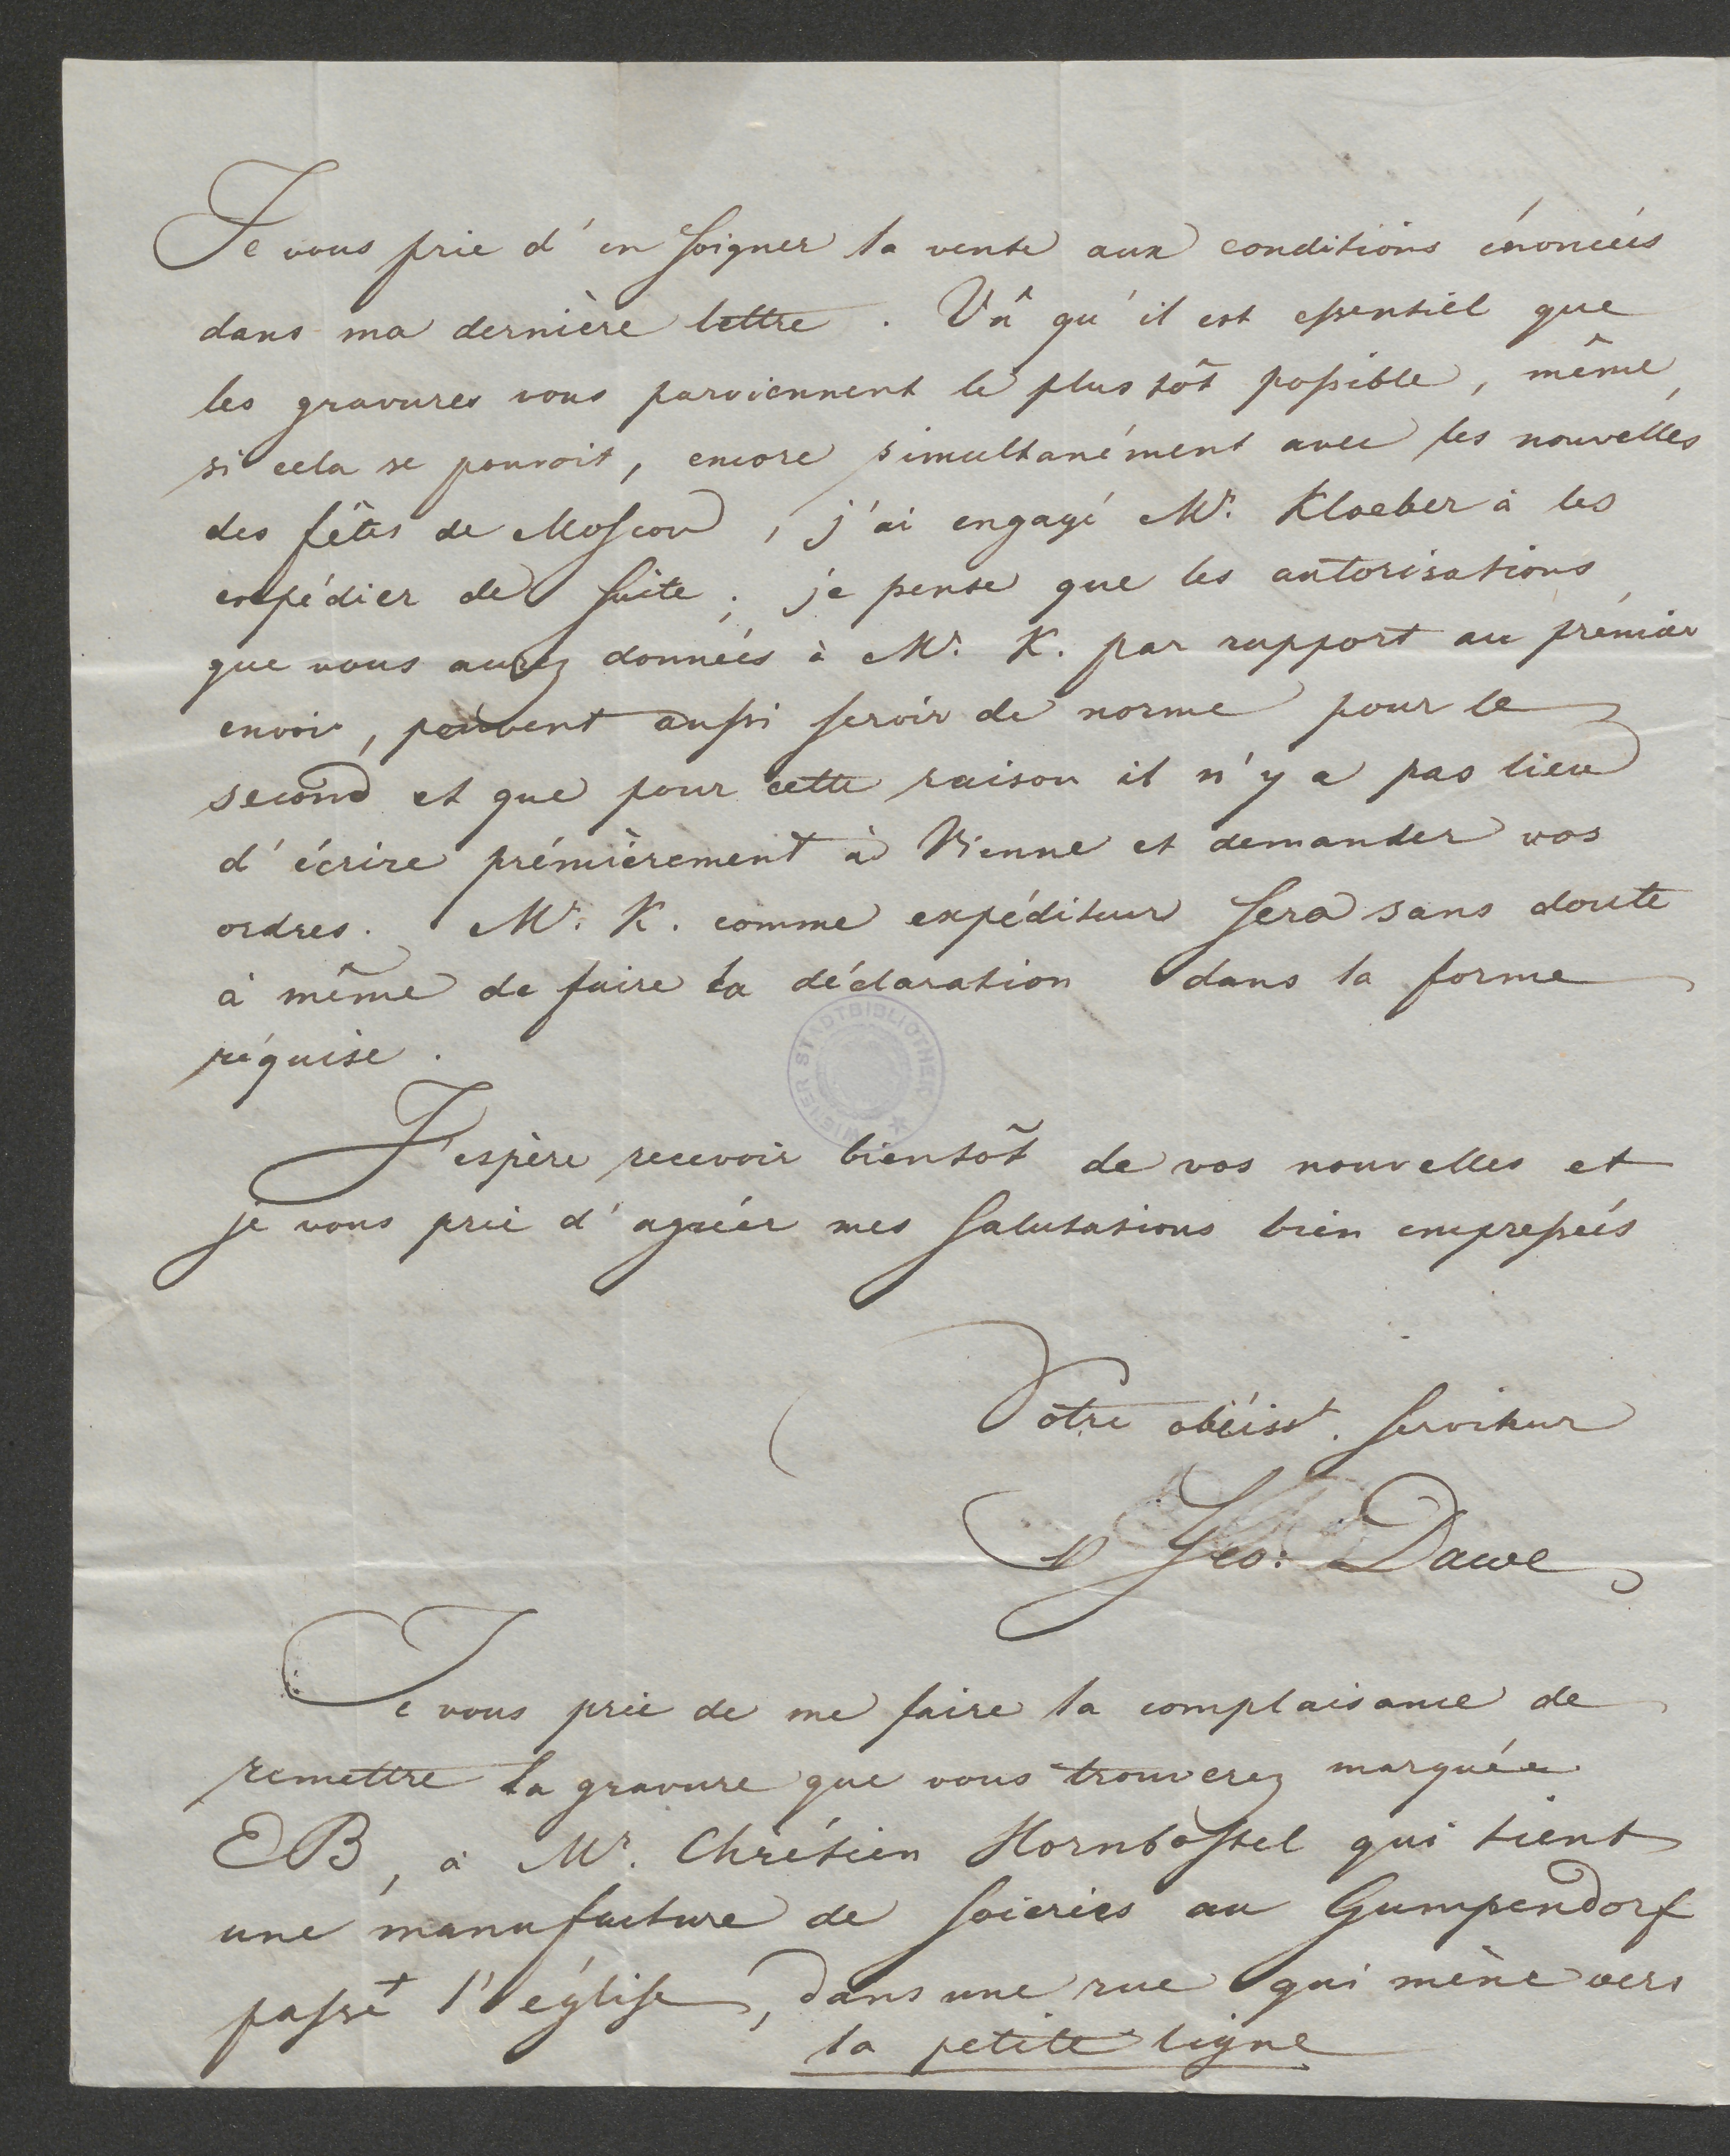 Je vous prie d'en soigner la vente aux conditions énoncées
dans ma dernière lettre. Vû qu'il est essentiel que
les gravures vous parviennent le plustôt possible, même,
si cela se pouvoit, encore simultanément avec les nouvelles
des fêtes de Moscou, j'ai engagé Mr. Kloeber à les
expédier de suite; je pense que les autorisations
que vous aurez données à Mr. K. par rapport au prémier
envoi, peuvent aussi servir de norme pour le
second et que pour cette raison il n'y a pas lieu
d'écrire prémièrement à Vienne et demander vos
ordres. Mr. K. comme expéditeur sera sans doute
à même de faire la déclaration dans la forme
réquise.
WIENER STADTBIBLIOTHEK
J'espère recevoir bientôt de vos nouvelles et
je vous prie d'agréer mes salutations bien empressées
Votre obéisst. serviteur
Geo: Dawe
Je vous prie de me faire la complaisance de
remettre la gravure que vous trouverez marquée
EB, à Mr. Chrétien Hornbostel qui tient
une manufacture de soieries au Gumpendorf
passé l'église, dans une rue qui mène vers
la petite ligne